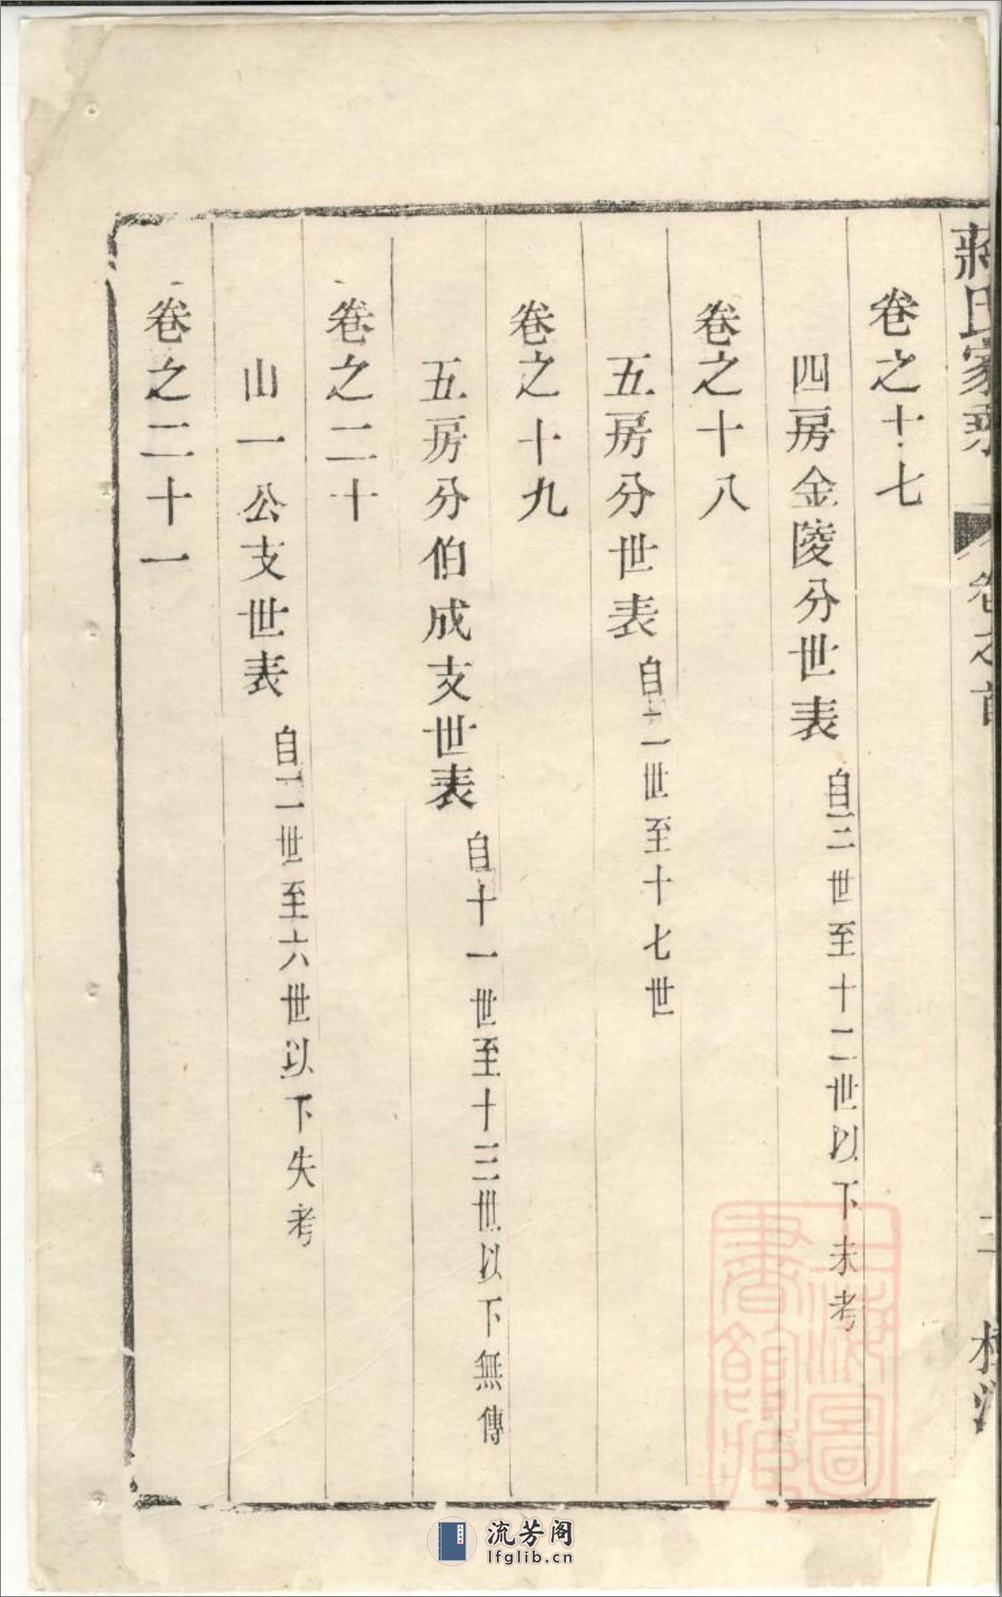 蔣氏家乘 卷之首 二
卷之十七
四房金陵分世表 自三世至十二世以下未考
卷之十八
五房分世表 自十一世至十七世
卷之十九
五房分伯成支世表 自十一世至十三世以下無傳
卷之二十
山一公支世表 自三世至六世以下失考
卷之二十一
上海圖
書館藏
流芳阁
lfglib.cn